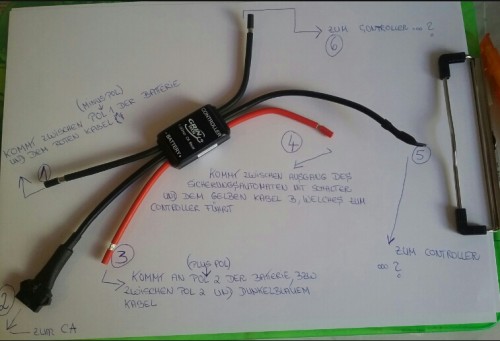 ZUM CONTROLLER ... ?
6
(MINUSPOL)
KOMMT ZWISCHEN POL 1 DER BATERIE
UND DEM ROTEN KABEL
1
CONTROLLER
BATTERY
4
KOMMT ZWISCHEN AUSGANG DES
SICHERUNGSAUTOMATEN MIT SCHALTER
UND DEM GELBEN KABEL 3, WELCHES ZUM
CONTROLLER FÜHRT
5
ZUM CONTROLLER
... ?
3
(PLUSPOL)
KOMMT AN POL 2 DER BATERIE, BZW
ZWISCHEN POL 2 UND DUNKELBLAUEM
KABEL
2
ZUM CA